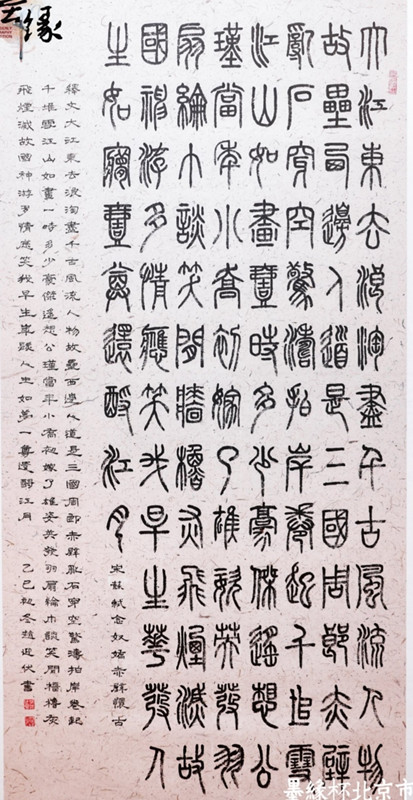 大江東去浪淘盡千古風流人物
故壘西邊人道是三國周郎赤壁
亂石穿空驚濤拍岸卷起千堆雪
江山如畫壹時多少豪傑遙想公
瑾當年小喬初嫁了雄姿英發羽
扇綸巾談笑間牆櫓灰飛煙滅故
國神游多情應笑我早生華發人
生如夢壹尊還酹江月 宋蘇軾念奴嬌赤壁懷古
釋文大江東去浪淘盡千古風流人物故壘西邊人道是三國周郎赤壁亂石穿空驚濤拍岸卷起
千堆雪江山如畫一時多少豪傑遙想公瑾當年小喬初嫁了雄姿英發羽扇綸巾談笑間檣櫓灰
飛煙滅故國神游多情應笑我早生華發人生如夢一尊還酹江月 乙巳初冬趙書
緣
墨緣杯北京市